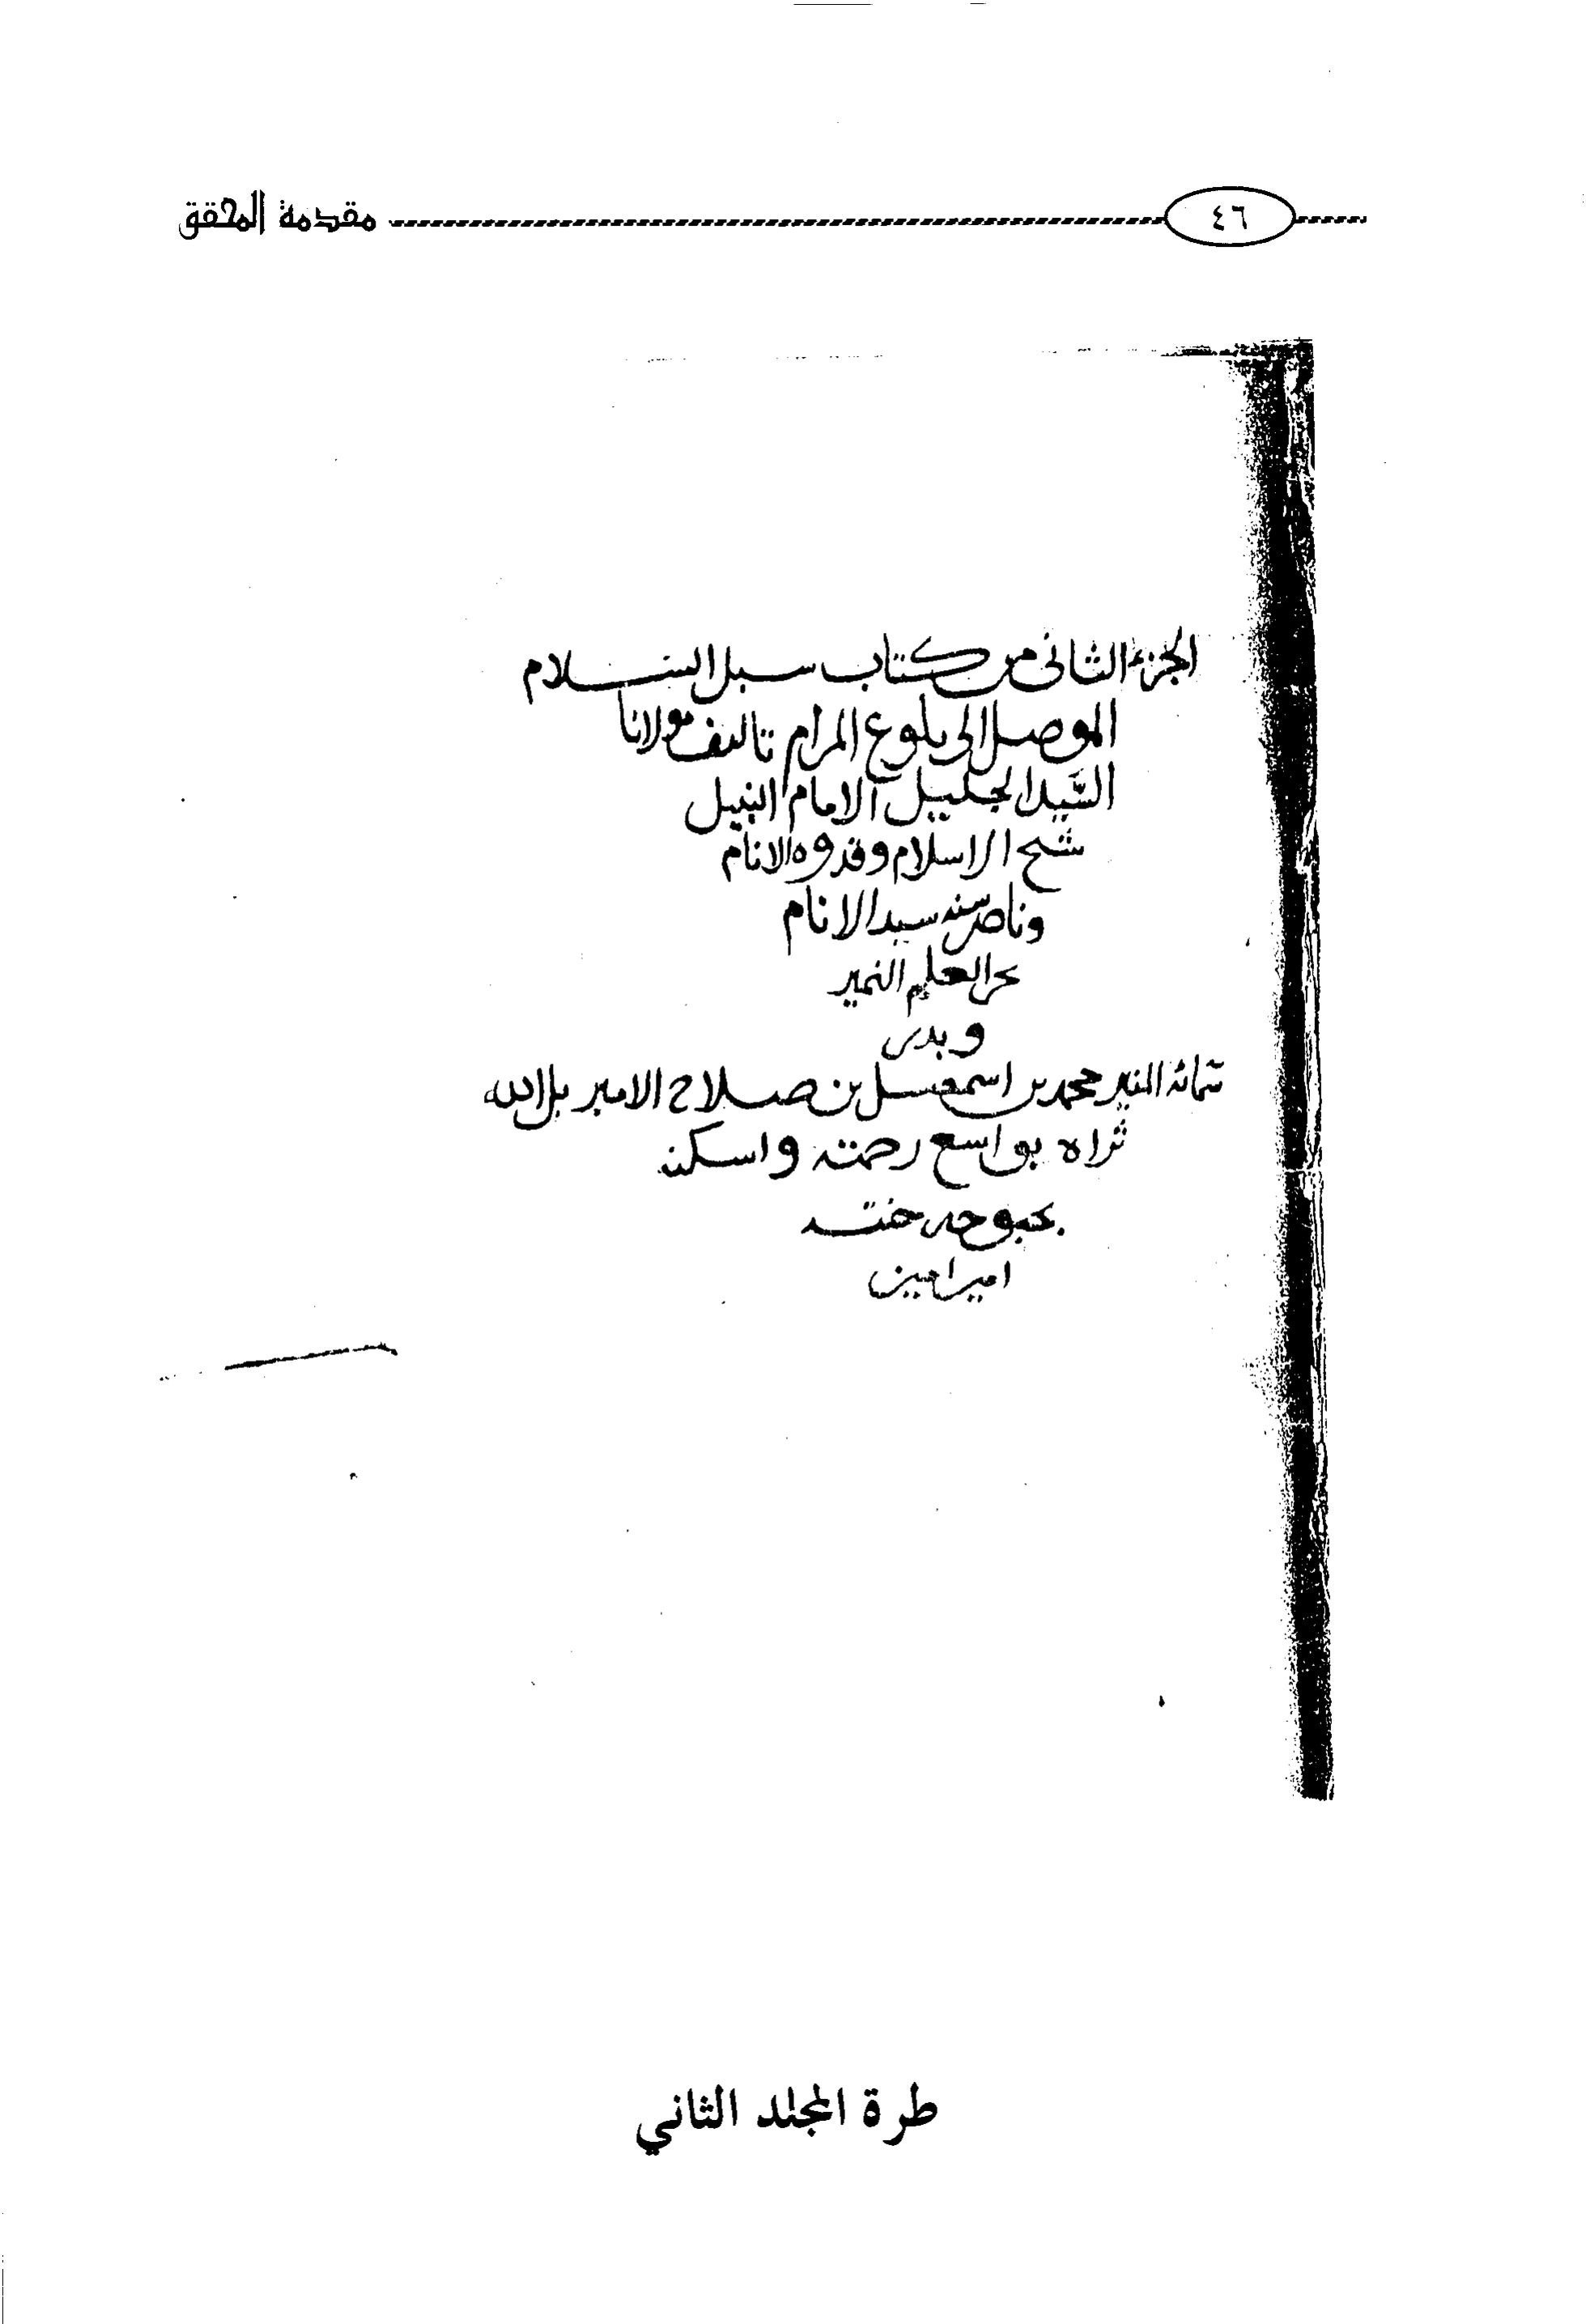 ٤٦ مقدمة المحقق
الجزء الثانى من كتاب سبل السلام
الموصل الى بلوغ المرام تاليف مولانا
السَّيد الجليل الامام النبيل
شيخ الاسلام وقدوه الانام
وناصر سنه سيد الانام
بحر العلم النمير
وبدر
سمائه المنير محمد بن اسمعيل بن صلاح الامير بل الله
ثراه بواسع رحمته واسكنه
بحبوحه جنته
امين امين
طرة المجلد الثاني